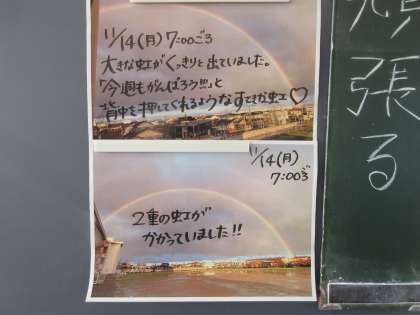 11/14(月) 7:00ごろ
大きな虹がくっきりと出ていました。
「今週もがんばろう!!」と
背中を押してくれるようなすてきな虹♡
11/14(月)
7:00ごろ
2重の虹が
かかっていました!!
張る